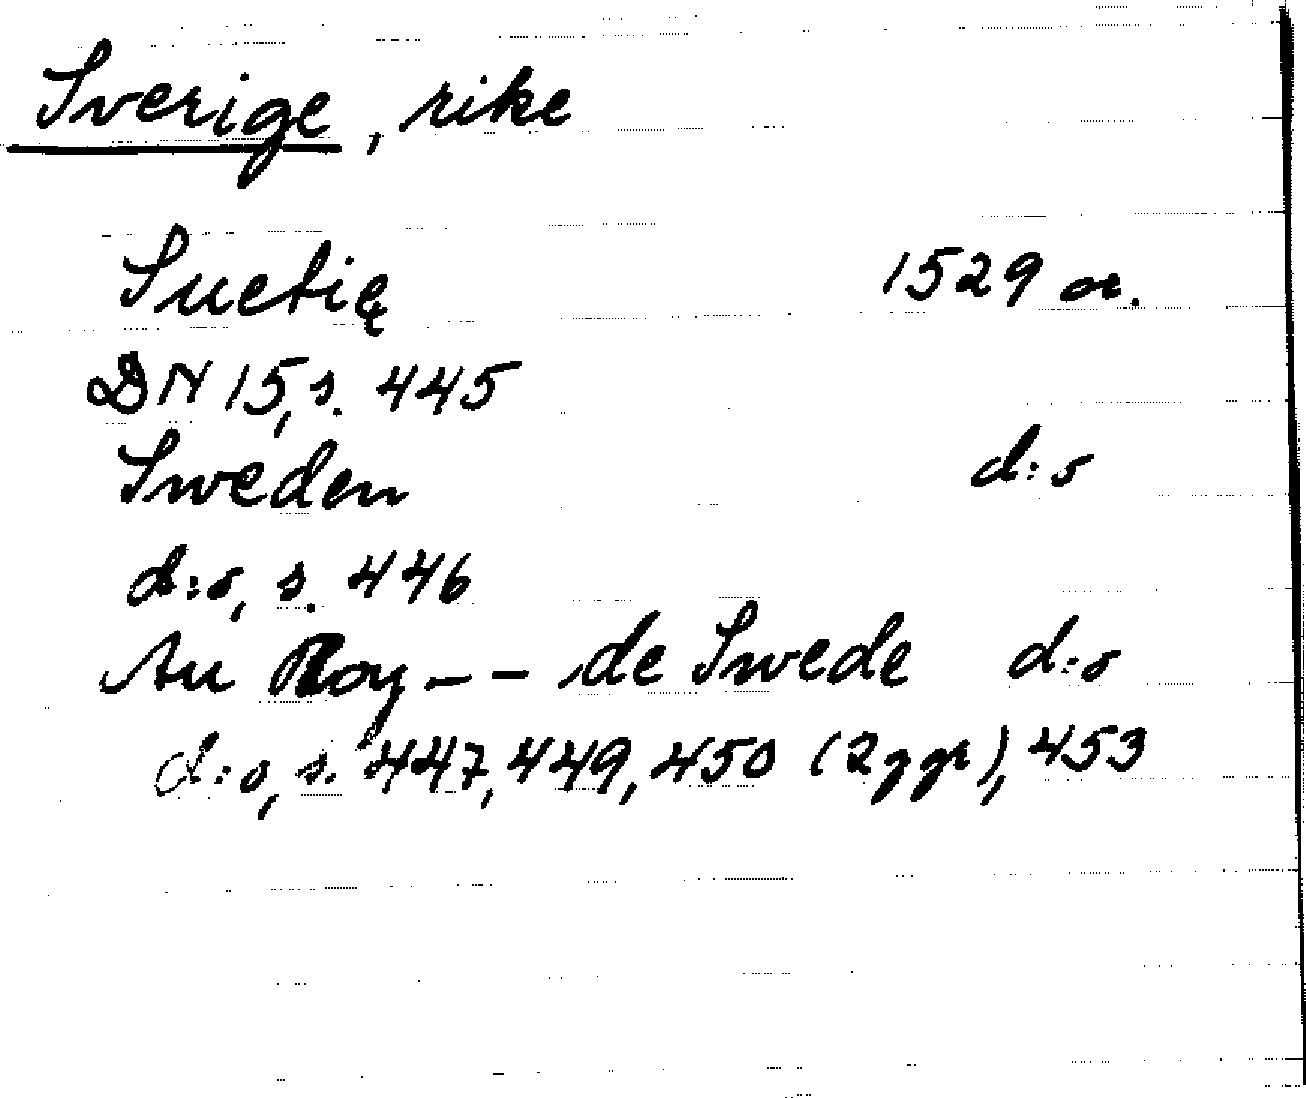 Sverige, rike
Suetię 1529 or.
DN 15, s. 445
Sweden d:o
d:o, s. 446
Au Roy -- de Swede d:o
d:o, s. 447, 449, 450 (2 ggr), 453